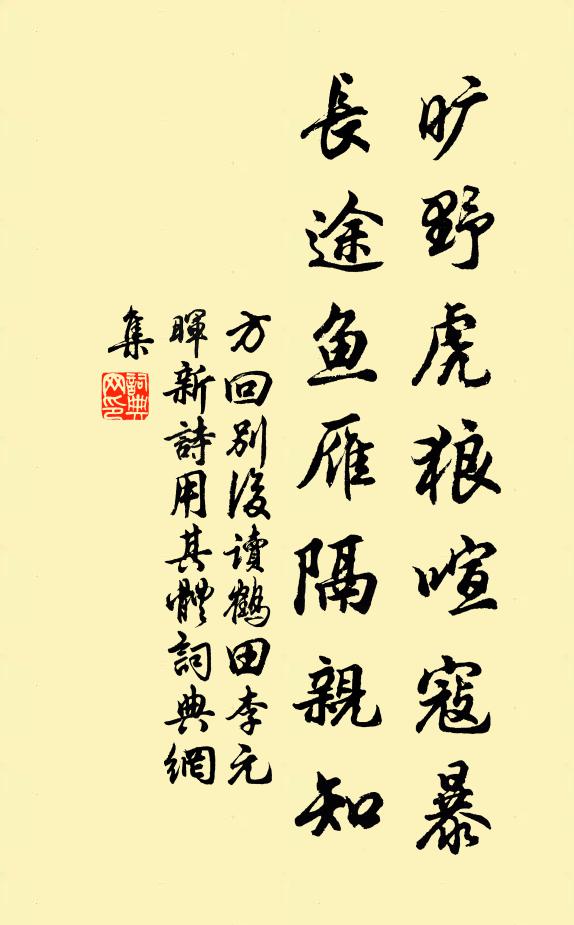 旷野虎狼喧寇暴
長途鱼雁隔親知
方回别後读鶴田李元
暉新詩用其體詞典網
集
詞典網印